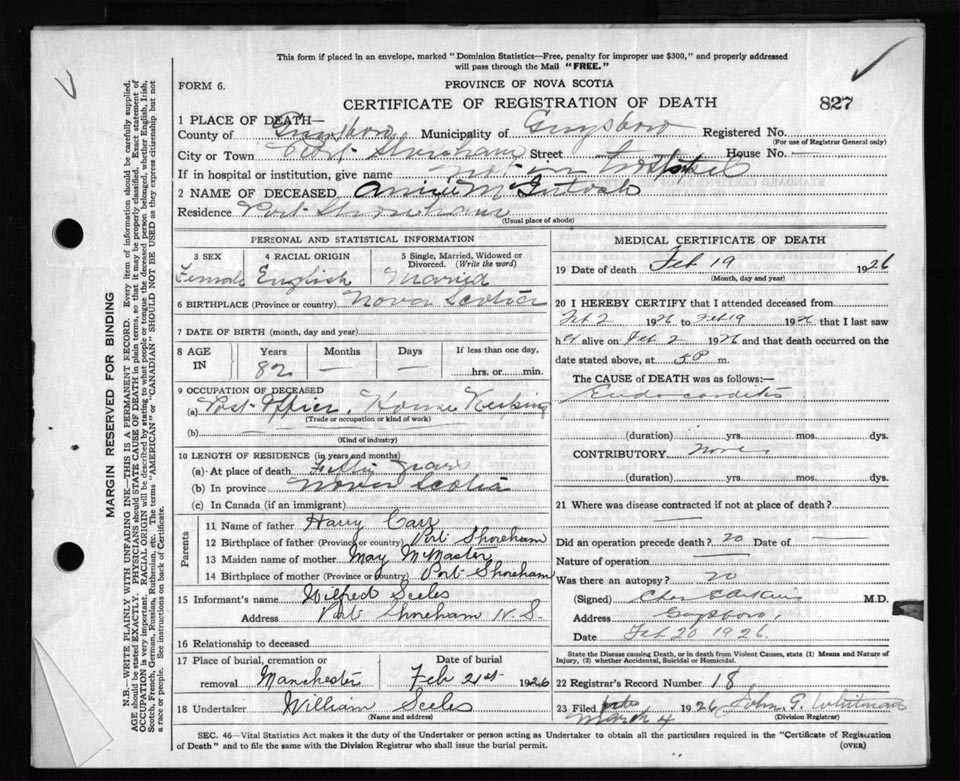 This form if placed in an envelope, marked "Dominion Statistics—Free, penalty for improper use $300," and properly addressed
will pass through the Mail "FREE."
FORM 6.
PROVINCE OF NOVA SCOTIA
CERTIFICATE OF REGISTRATION OF DEATH
827
1 PLACE OF DEATH—
County of Guysboro Municipality of Guysboro Registered No.
(For use of Registrar General only)
City or Town Port Shoreham Street House No. —
If in hospital or institution, give name not in hospital
2 NAME OF DECEASED Annie McIntosh
Residence Port Shoreham
(Usual place of abode)
PERSONAL AND STATISTICAL INFORMATION
3 SEX 4 RACIAL ORIGIN 5 Single, Married, Widowed or Divorced. (Write the word)
Female English Married
6 BIRTHPLACE (Province or country) Nova Scotia
7 DATE OF BIRTH (month, day and year)
8 AGE IN Years Months Days If less than one day,
82 — — hrs. or min.
9 OCCUPATION OF DECEASED
(a) Post Officer, House Keeking
(Trade or occupation or kind of work)
(b)
(Kind of industry)
10 LENGTH OF RESIDENCE (in years and months)
(a) At place of death years
(b) In province Nova Scotia
(c) In Canada (if an immigrant)
Parents
11 Name of father Harry Carr
12 Birthplace of father (Province or country) Port Shoreham
13 Maiden name of mother May McMaster
14 Birthplace of mother (Province or country) Port Shoreham
15 Informant's name Wilfred Seeles
Address Port Shoreham N.S.
16 Relationship to deceased
17 Place of burial, cremation or removal Manchester Date of burial Feb 21st 1926
18 Undertaker William Seeles
(Name and address)
MEDICAL CERTIFICATE OF DEATH
19 Date of death Feb 19 1926
(Month, day and year)
20 I HEREBY CERTIFY that I attended deceased from
Feb 2 1926 to Feb 19 1926 that I last saw
her alive on Feb 2 1926 and that death occurred on the
date stated above, at 5 P m.
The CAUSE of DEATH was as follows:—
Endocarditis
(duration) yrs. mos. dys.
CONTRIBUTORY None
(duration) yrs. mos. dys.
21 Where was disease contracted if not at place of death?
—
Did an operation precede death? no Date of —
Nature of operation
Was there an autopsy? no
(Signed) M.D.
Address Guysboro
Date Feb 20 1926.
State the Disease causing Death, or in death from Violent Causes, state (1) Means and Nature of
Injury, (2) whether Accidental, Suicidal or Homicidal.
22 Registrar's Record Number 18
23 Filed March 4 1926 John G. Whitman
(Division Registrar)
SEC. 46—Vital Statistics Act makes it the duty of the Undertaker or person acting as Undertaker to obtain all the particulars required in the "Certificate of Registration
of Death" and to file the same with the Division Registrar who shall issue the burial permit.
(OVER)
MARGIN RESERVED FOR BINDING
N.B.—WRITE PLAINLY WITH UNFADING INK—THIS IS A PERMANENT RECORD. Every item of information should be carefully supplied.
AGE should be stated EXACTLY. PHYSICIANS should STATE CAUSE OF DEATH in plain terms, so that it may be properly classified. Exact statement of
OCCUPATION is very important. RACIAL ORIGIN will be described by stating to what people or tongue the deceased person belonged, whether English, Irish,
Scotch, French, German, Russian, Ruthenian, etc. The terms "AMERICAN" or "CANADIAN" SHOULD NOT BE USED as they express citizenship but not
a race or people. See instructions on back of Certificate.